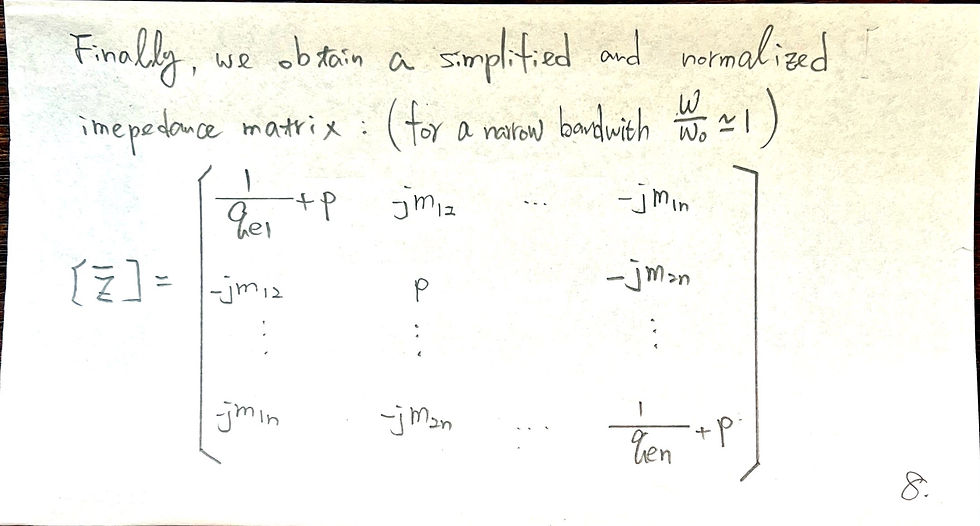 Finally, we obtain a simplified and normalized
imepedance matrix : (for a narrow bandwith W/W₀ ≃ 1)
[Z̄] = [ 1/qe1 + p   -jm12   ...   -jm1n
-jm12   p   -jm2n
⋮   ⋮   ⋮
-jm1n   -jm2n   ...   1/qen + p ]
8.